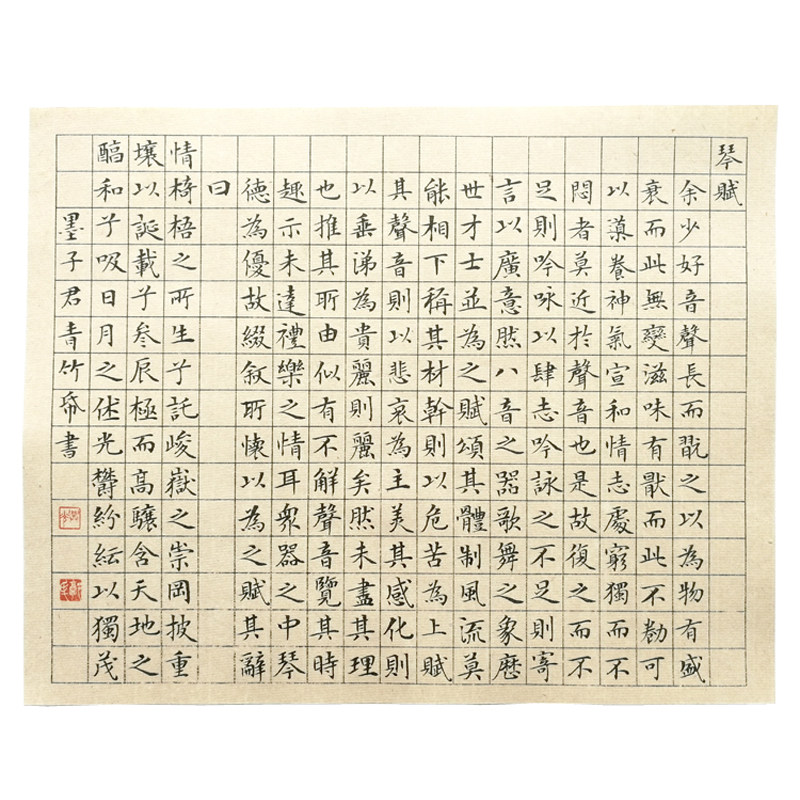 琴賦
余少好音聲長而翫之以為物有盛
衰而此無變滋味有猒而此不勌可
以導養神氣宣和情志處窮獨而不
悶者莫近於聲音也是故復之而不
足則吟咏以肆志吟詠之不足則寄
言以廣意然八音之器歌舞之象歷
世才士並為之賦頌其體制風流莫
能相下稱其材幹則以危苦為上賦
其聲音則以悲哀為主美其感化則
以垂涕為貴麗則麗矣然未盡其理
也推其所由似有不解聲音覽其時
趣示未達禮樂之情耳眾器之中琴
德為優故綴敘所懷以為之賦其辭
曰
情椅梧之所生兮託峻嶽之崇岡披重
壤以誕載兮參辰極而高驤含天地之
醕和兮吸日月之休光鬱紛紜以獨茂
墨子君青竹帋書